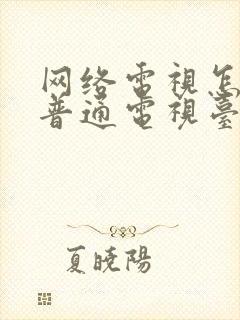 网络電視怎
普通電視臺
夏曉陽